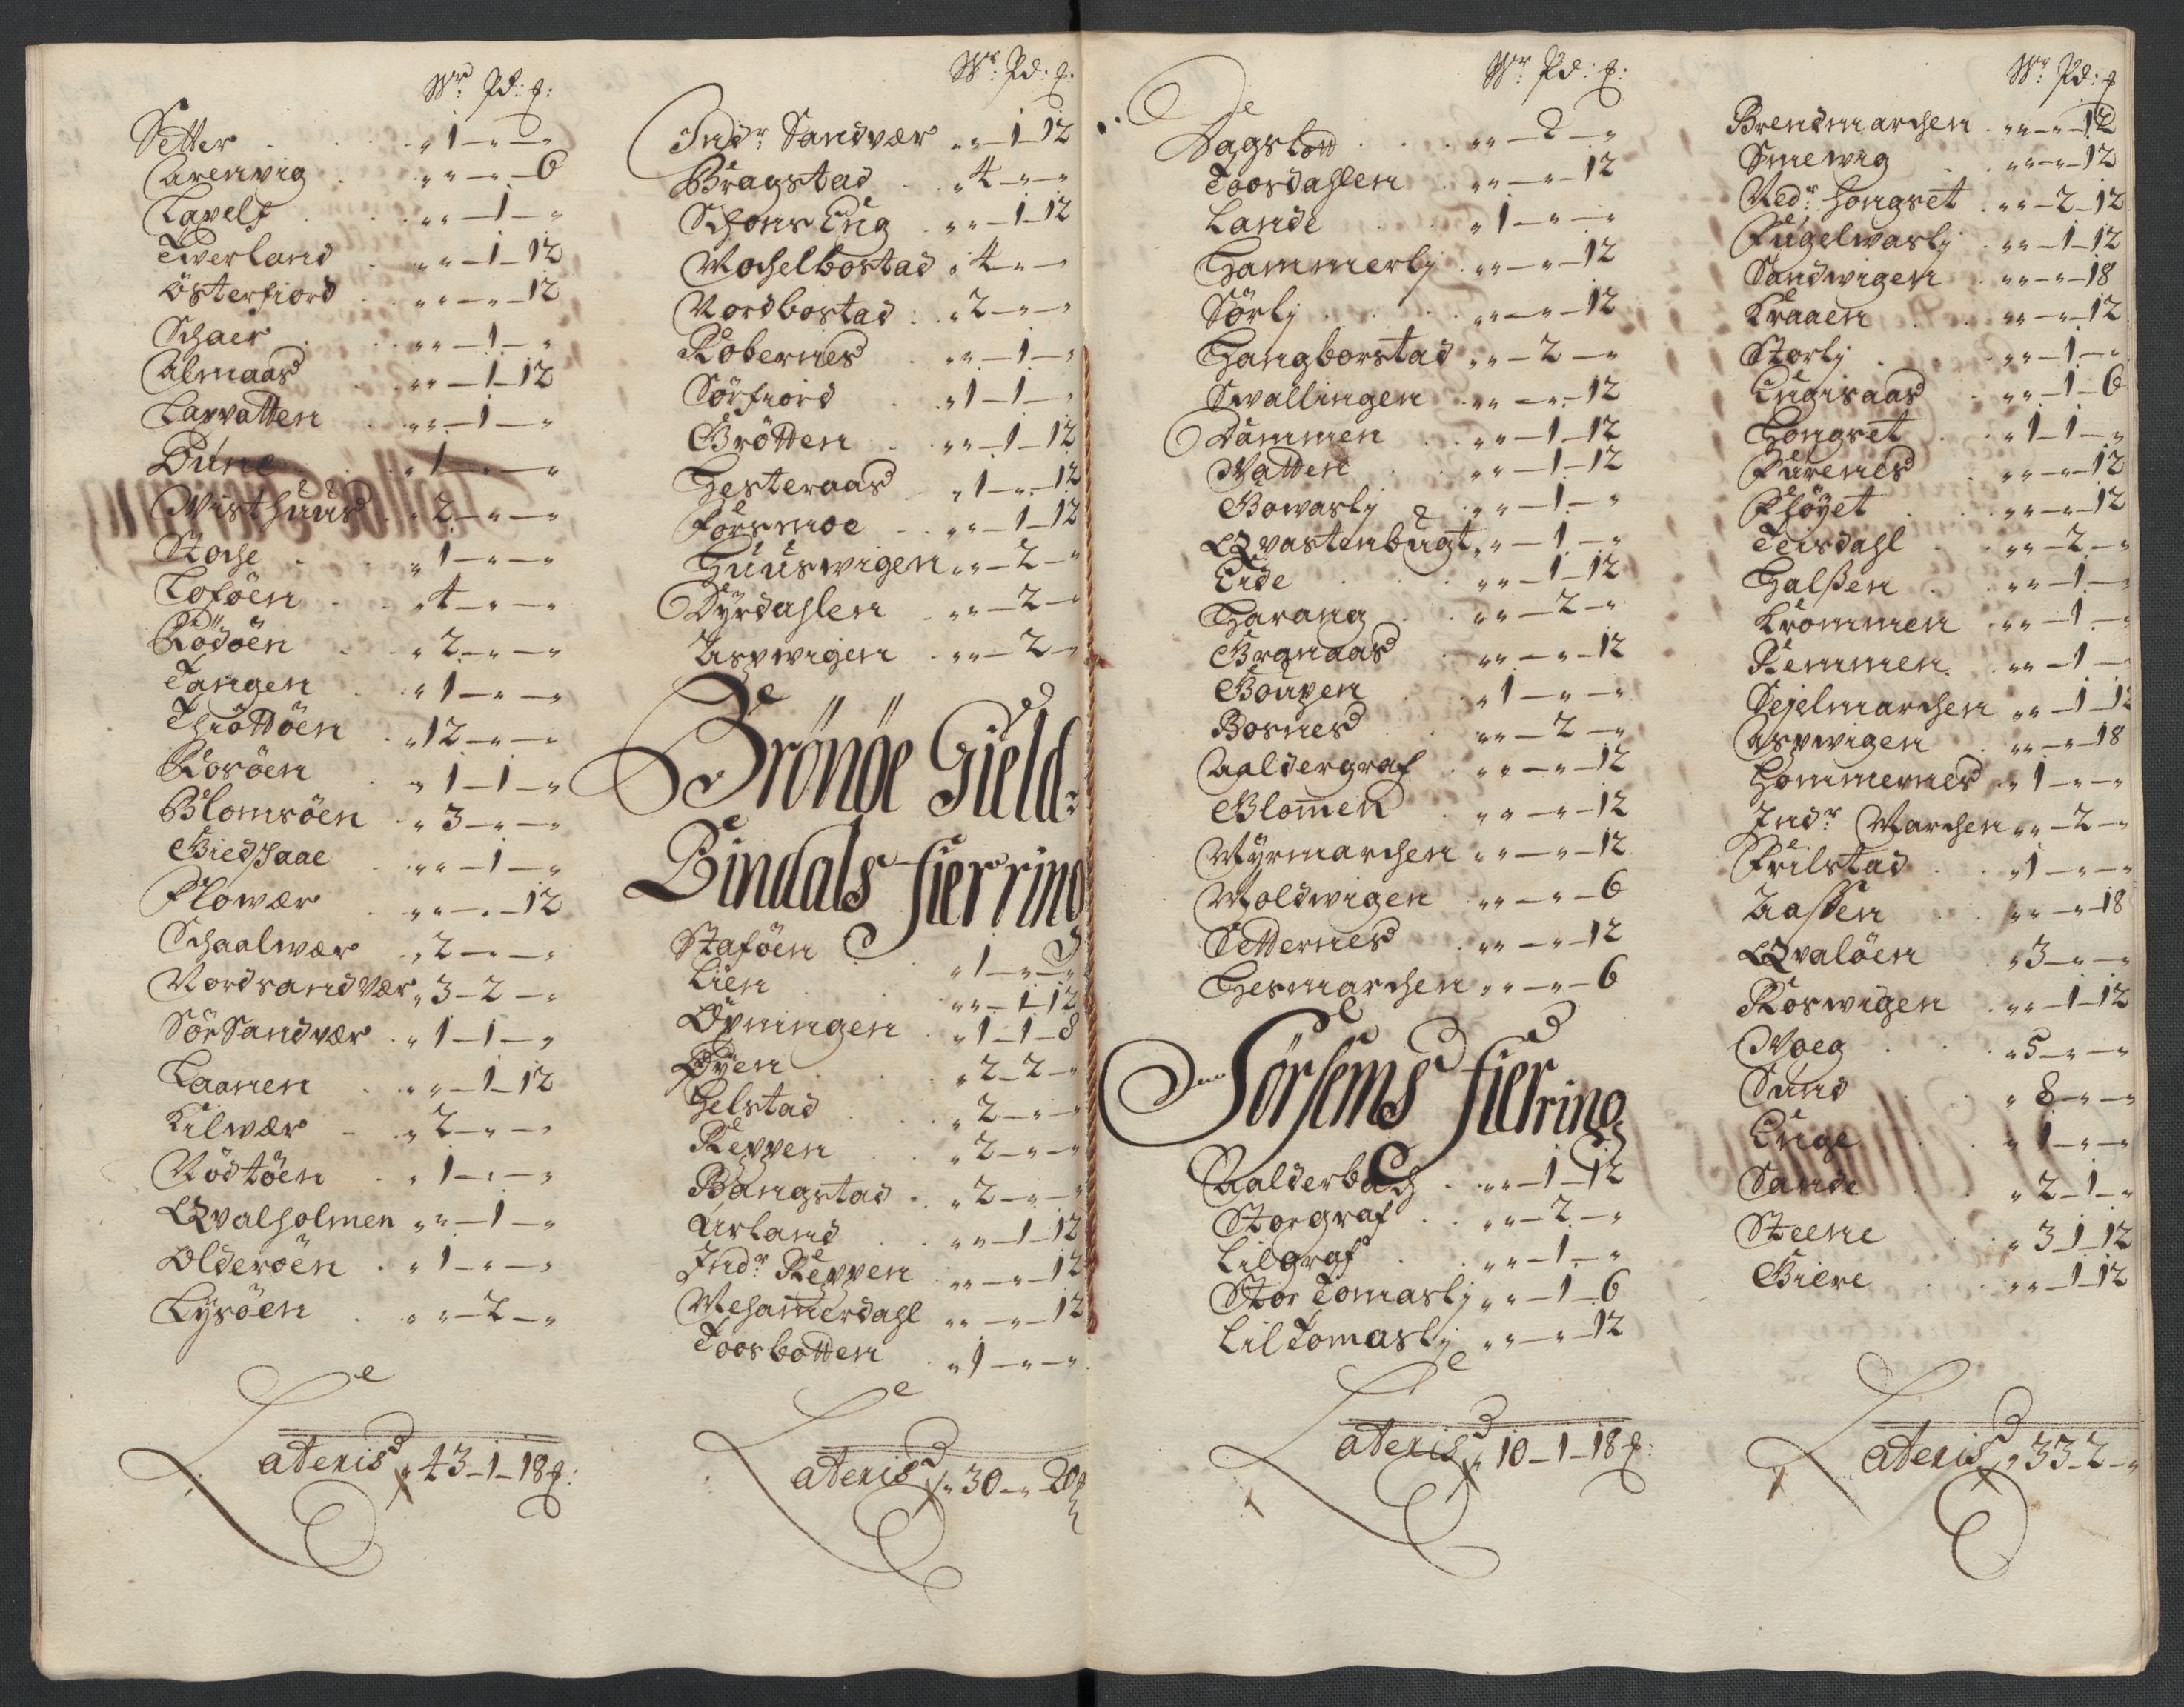 Wr: Pd: ꝑ:
Setter „ 1 – „ – „
Arenvig „ „ – „ – 6
Lavelf „ „ – 1 – „
Tverland „ „ – 1 – 12
Österfiord „ „ – „ – 12
Schaer „ „ – 1 – „
Almaas „ „ – 1 – 12
Larvatten „ „ – 1 – „
Dune „ 1 – „ – „
Wisthuus „ 2 – „ – „
Stoche „ 1 – „ – „
Loföen „ 4 – „ – „
Rödöen „ 2 – „ – „
Tangen „ 1 – „ – „
Thiöttöen „ 12 – „ – „
Rosöen „ 1 – 1 – „
Blomsöen „ 3 – „ – „
Giedhaae „ „ – 1 – „
Flowær „ „ – „ – 12
Schaalwær „ 2 – „ – „
Nordsandvær „ 3 – 2 – „
Sör Sandvær „ 1 – 1 – „
Laanen „ „ – 1 – 12
Kilwær „ 2 – „ – „
Nödtöen „ 1 – „ – „
Qvalholmen „ „ – 1 – „
Olderöen „ 1 – „ – „
Lysöen „ „ – 2 – „
Lateris „ 43 – 1 – 18 ꝑ:
Wr: Pd: ꝑ:
Indr: Sandvær „ „ – 1 – 12
Bragstad „ 4 – „ – „
Schons Eng „ „ – 1 – 12
Mochelbostad „ 4 – „ – „
Nordbostad „ 2 – „ – „
Kobernes „ „ – 1 – „
Sörfiord „ 1 – 1 – „
Grötten „ „ – 1 – 12
Hesteraas „ 1 – „ – 12
Forsmoe „ „ – 1 – 12
Huuswigen „ „ – 2 – „
Dyrdahlen „ „ – 2 – „
Aspwigen „ „ – 2 – „
Brönöe Gield:
Bindals fierring
Staföen „ 1 – „ – „
Lien „ „ – 1 – 12
Öpningen „ 1 – 1 – 8
Öyen „ 2 – 2 – „
Helstad „ 2 – „ – „
Reppen „ 2 – „ – „
Bangstad „ 2 – „ – „
Urland „ „ – 1 – 12
Indr: Reppen „ „ – „ – 12
Mehamerdahl „ „ – „ – 12
Toosbotten „ 1 – „ – „
Lateris „ 30 – „ – 20 ꝑ
Wr: Pd: ꝑ:
Dagslott „ „ – 2 – „
Toosdahlen „ „ – „ – 12
Lande „ 1 – „ – „
Hammerlj „ „ – „ – 12
Sörlj „ „ – „ – 12
Hangborstad „ „ – 2 – „
Swallingen „ „ – „ – 12
Dammen „ „ – 1 – 12
Vatten „ „ – 1 – 12
Gowaslj „ „ – 1 – „
Qvastenbugt „ „ – 1 – „
Eide „ „ – 1 – 12
Harang „ „ – 2 – „
Granaas „ „ – „ – 12
Goupen „ 1 – „ – „
Bosnes „ „ – 2 – „
Aaldergraf „ „ – „ – 12
Glomen „ „ – „ – 12
Myrmarchen „ „ – „ – 12
Moldwigen „ „ – „ – 6
Setternes „ „ – „ – 12
Hesmarchen „ „ – „ – 6
Sörsems fierring
Aalderbach „ „ – 1 – 12
Storgraf „ „ – 2 – „
Lilgraf „ „ – 1 – „
Stor Tomaslj „ „ – 1 – 6
Lil Tomaslj „ „ – „ – 12
Lateris „ 10 – 1 – 18 ꝑ:
Wr: Pd: ꝑ
Brendmarchen „ „ – „ – 12
Smewig „ „ – „ – 12
Nedr: Hongset „ „ – 2 – 12
Fugelwaslj „ „ – 1 – 12
Sandwigen „ „ – „ – 18
Kraaen „ „ – „ – 12
Storlj „ „ – 1 – „
Engisaas „ „ – 1 – 6
Hongset „ 1 – 1 – „
Furenes „ „ – „ – 12
Fhöyet „ „ – „ – 12
Teisdahl „ „ – 2 – „
Halßen „ „ – 1 – „
Krommen „ „ – 1 – „
Remmen „ „ – 1 –
Sejelmarchen „ „ – 1 – 12
Aspwigen „ „ – „ – 18
Hommernes „ 1 – „ – „
Indr: Marchen „ „ – 2 – „
Frilstad „ 1 – „ – „
Aaßen „ „ – „ – 18
Qvalöen „ 3 – „ – „
Roswigen „ „ – 1 – 12
Woeg „ 5 – „ – „
Sund „ 8 – „ – „
Enge „ 1 – „ – „
Sande „ 2 – 1 – „
Steene „ 3 – 1 – 12
Giere „ „ – 1 – 12
Lateris „ 33 – 2 – „